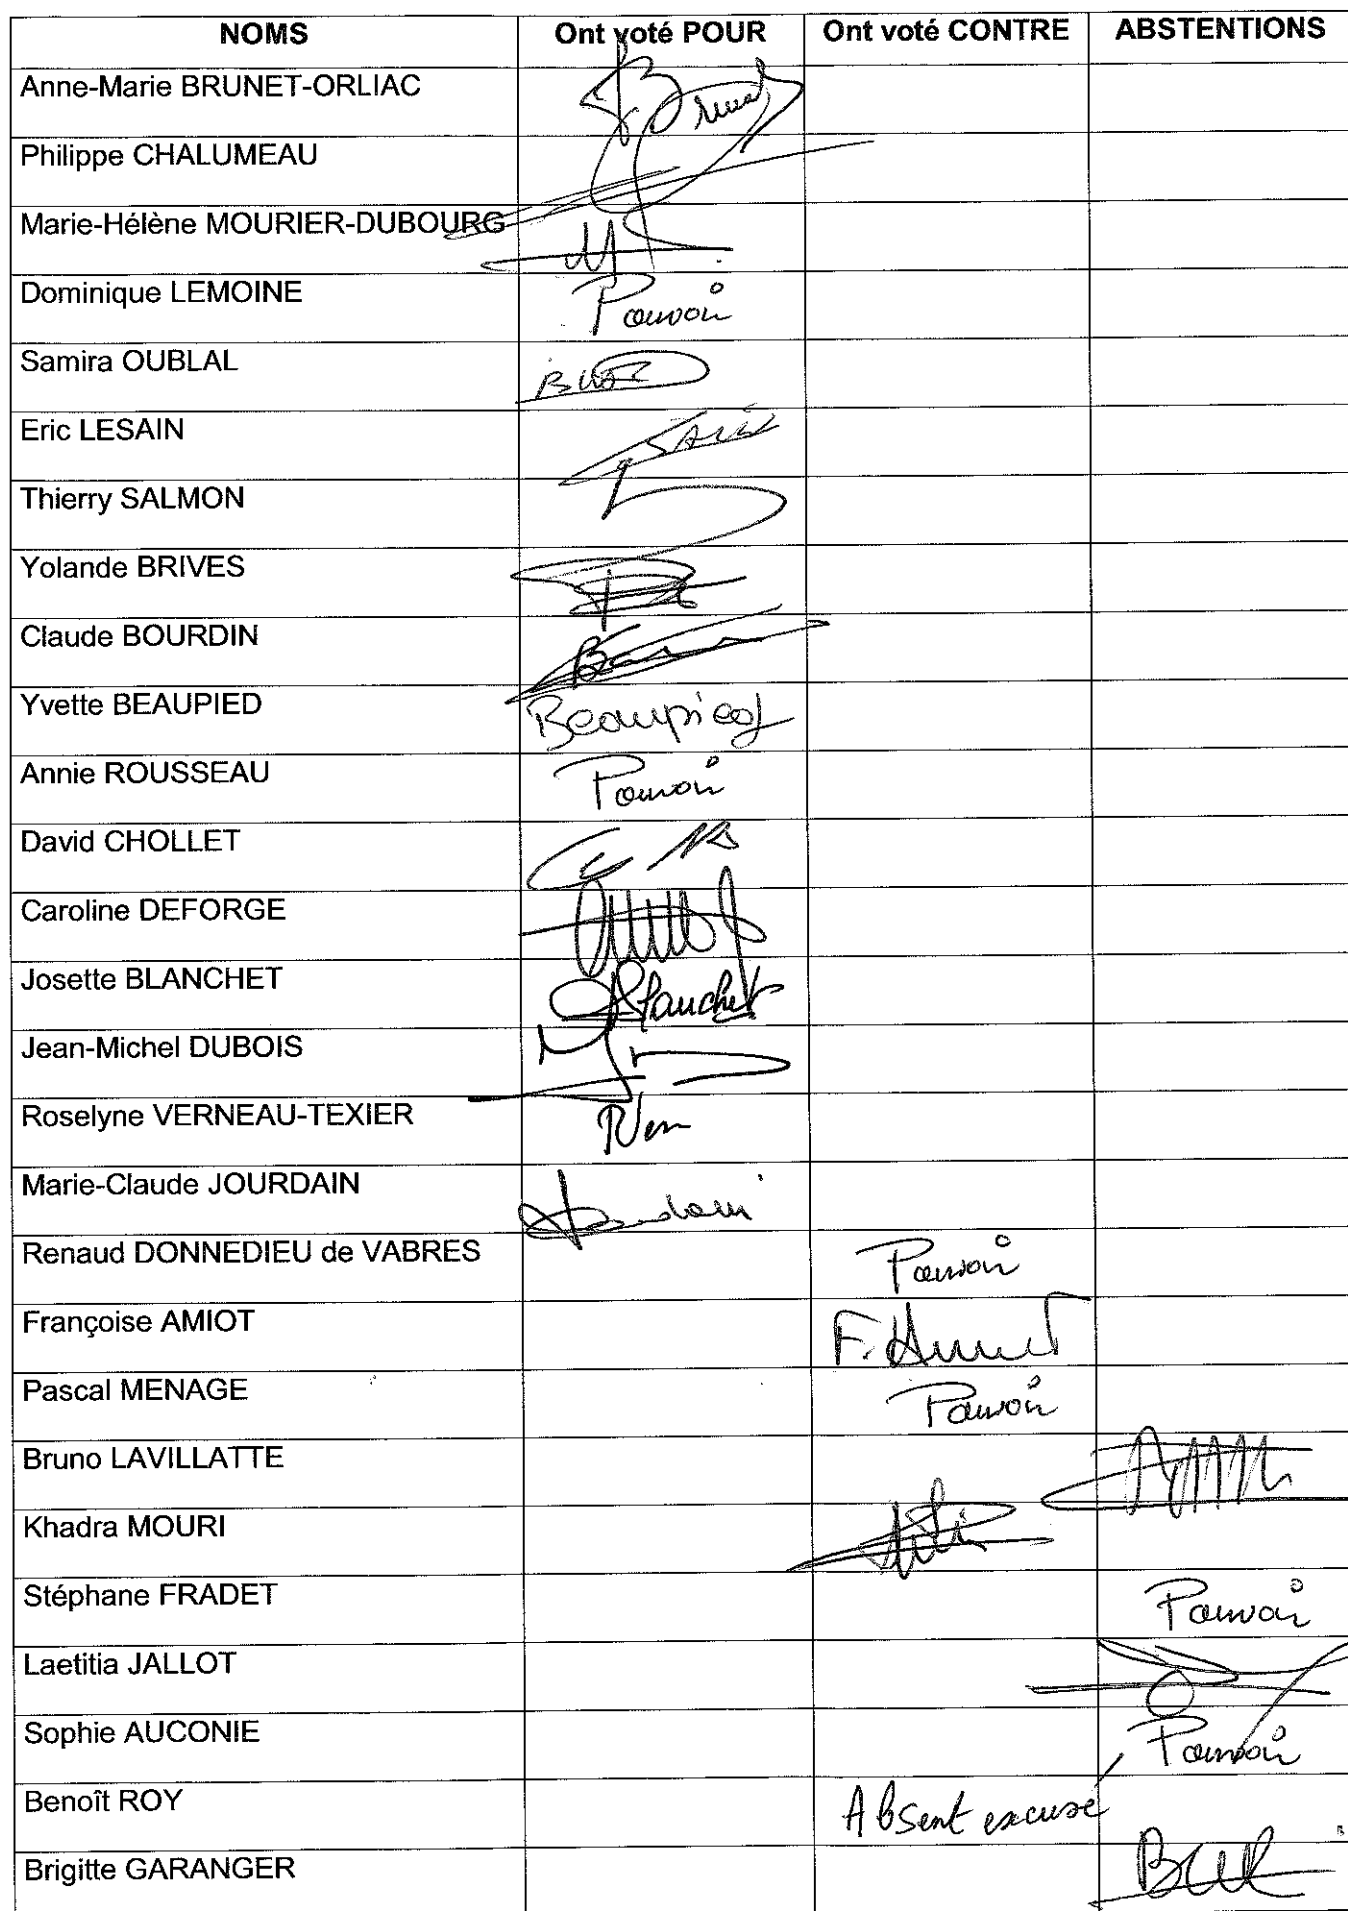 NOMS Ont voté POUR Ont voté CONTRE ABSTENTIONS
Anne-Marie BRUNET-ORLIAC
Philippe CHALUMEAU
Marie-Hélène MOURIER-DUBOURG
Dominique LEMOINE Pouvoir
Samira OUBLAL
Eric LESAIN
Thierry SALMON
Yolande BRIVES
Claude BOURDIN
Yvette BEAUPIED Beaupied
Annie ROUSSEAU Pouvoir
David CHOLLET
Caroline DEFORGE
Josette BLANCHET Blanchet
Jean-Michel DUBOIS
Roselyne VERNEAU-TEXIER
Marie-Claude JOURDAIN
Renaud DONNEDIEU de VABRES Pouvoir
Françoise AMIOT F. Amiot
Pascal MENAGE Pouvoir
Bruno LAVILLATTE
Khadra MOURI
Stéphane FRADET Pouvoir
Laetitia JALLOT
Sophie AUCONIE Pouvoir
Benoît ROY Absent excusé
Brigitte GARANGER